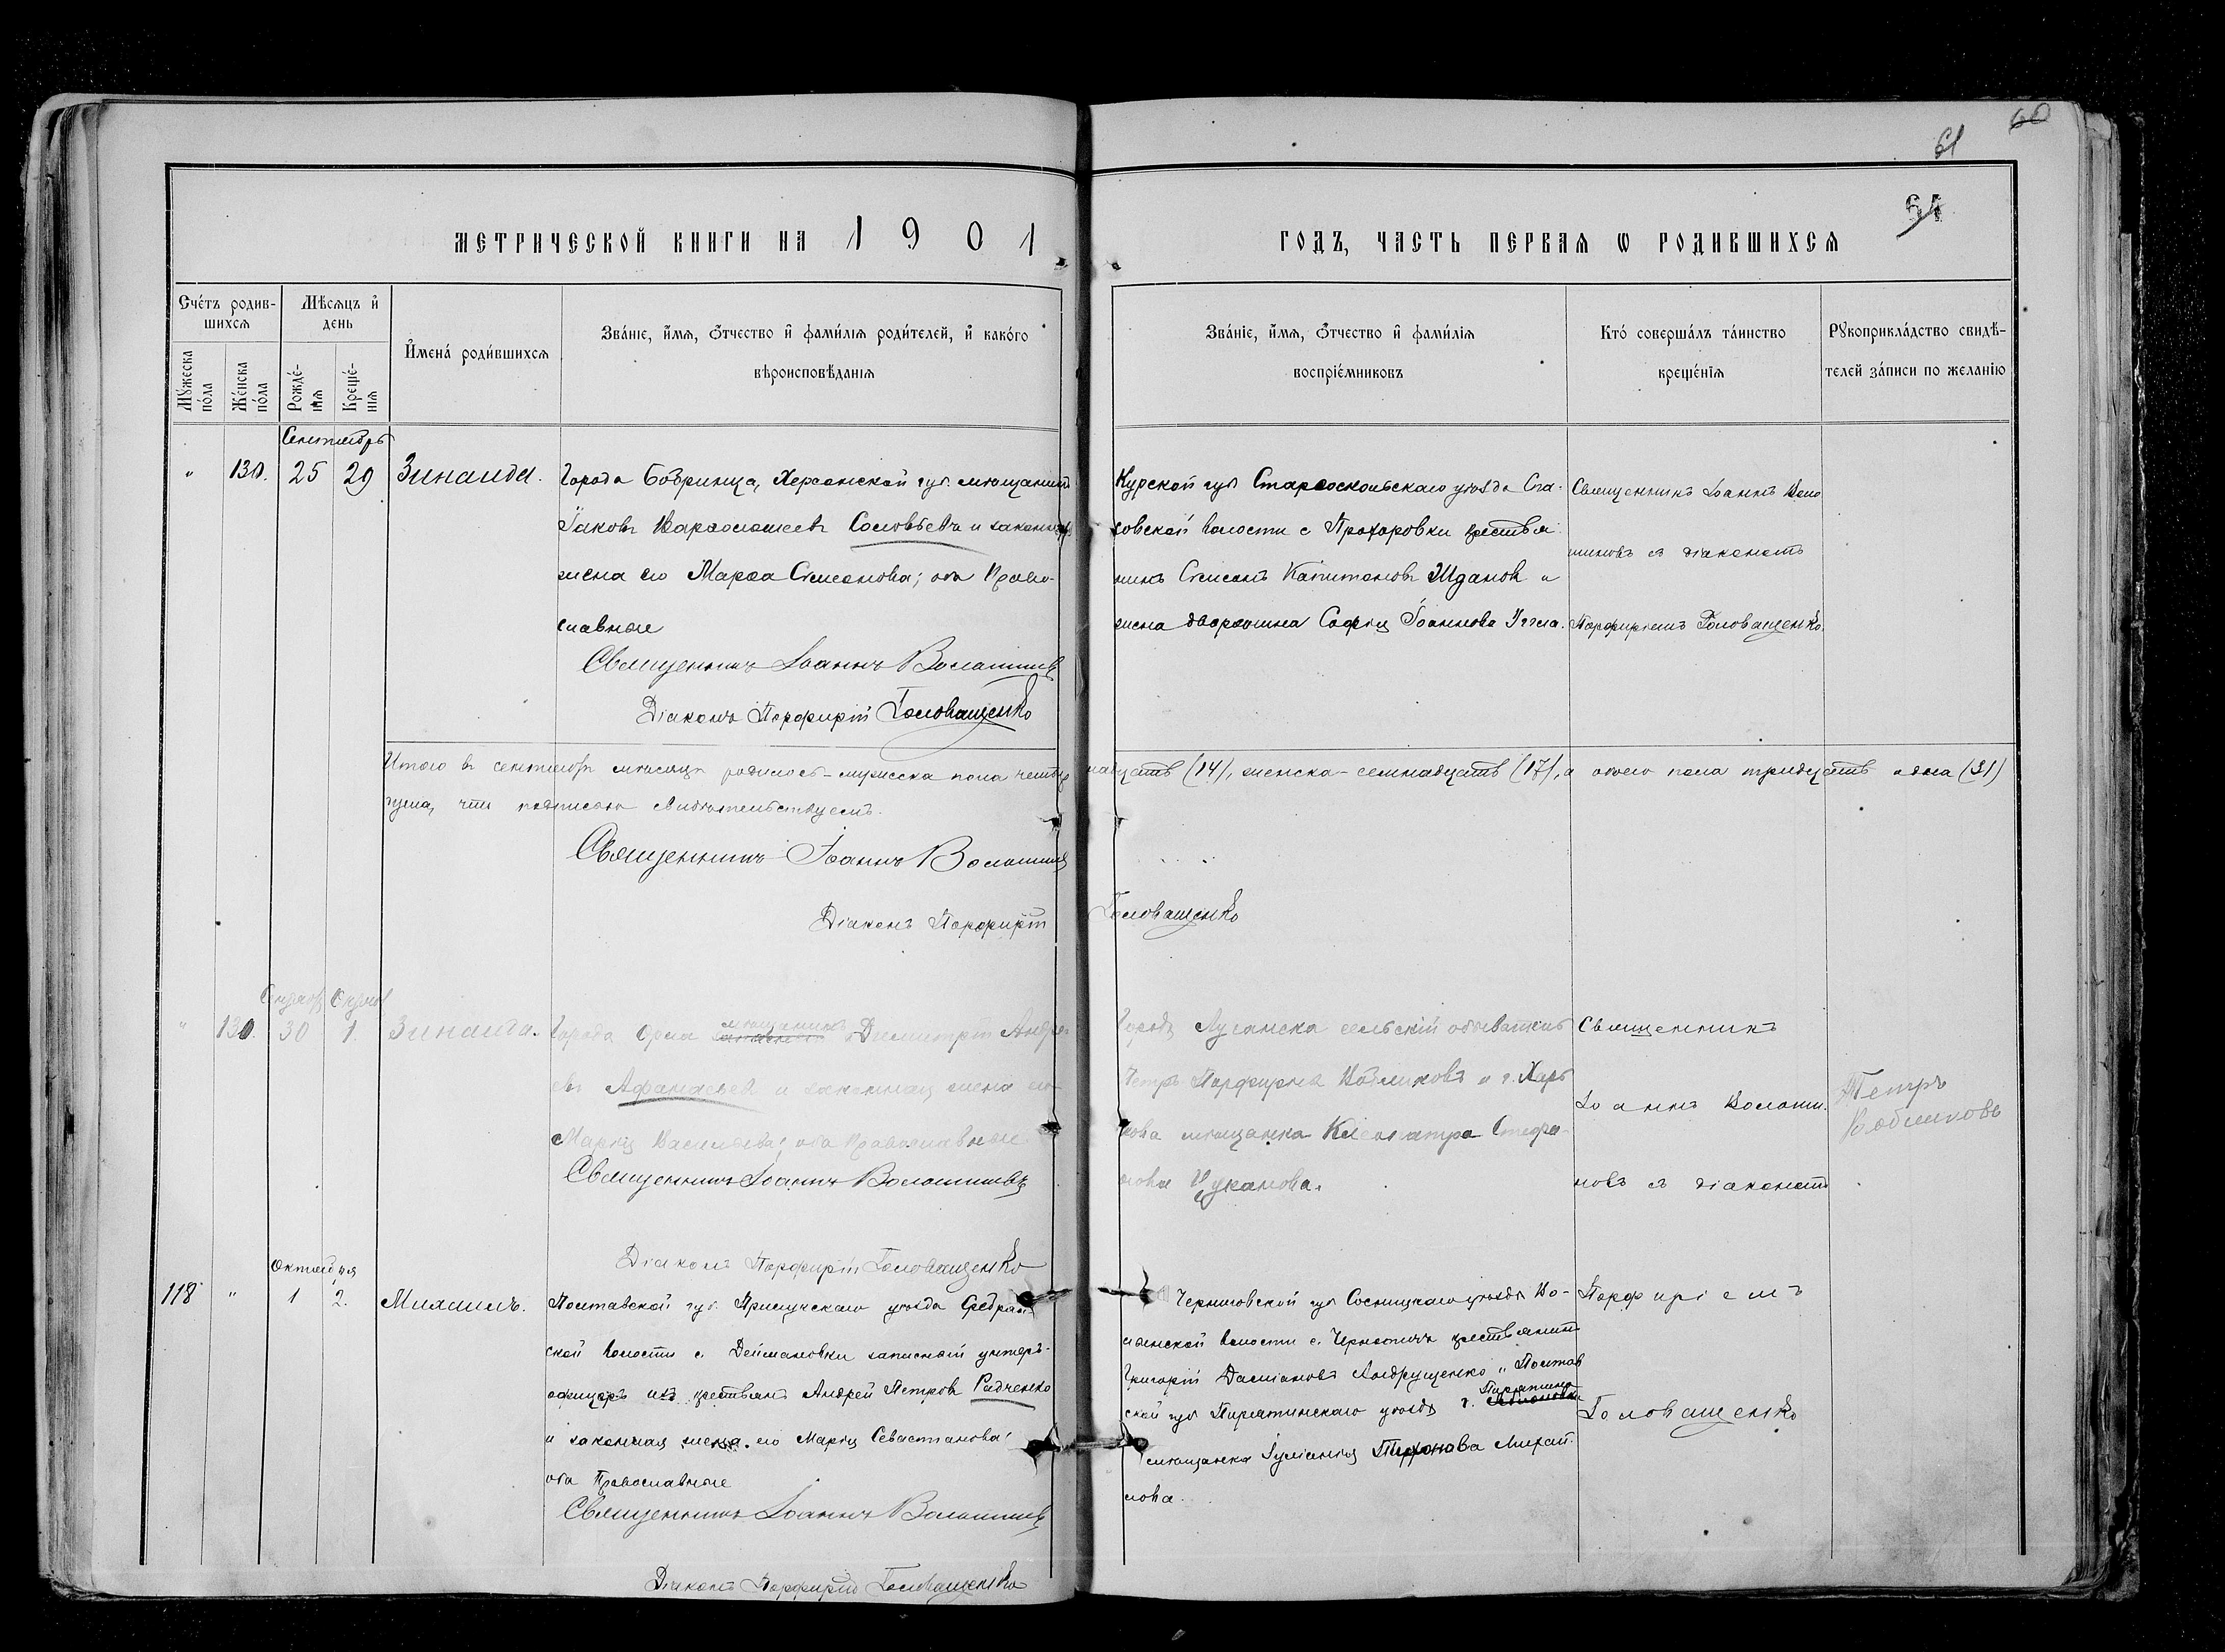 60
61
61
МЕТРИЧЕСКОЙ КНИГИ НА 1901
ГОДЪ, ЧАСТЬ ПЕРВАЯ Ѡ РОДИВШИХСЯ
Счетъ родив-
шихся
Мужеска
пола
Женска
пола
Мѣсяцъ и
день
Рожде-
нія
Креще-
нія
Имена родившихся
Званіе, имя, отчество и фамилія родителей, и какого
вѣроисповѣданія
Званіе, имя, отчество и фамилія
воспріемниковъ
Кто совершалъ таинство
крещенія
Рукоприкладство свидѣ-
телей записи по желанію
Сентябрь
" 130. 25 29 Зинаида.
Города Бобринца, Херсонской губ. мѣщанинъ
Іаковъ Варѳоломеевъ Соловьевъ и законная
жена его Марѳа Симеонова; оба Право-
славные
Священникъ Іоаннъ Волошиновъ
Діаконъ Порфирій Головащенко
Курской губ Старооскольскаго уѣзда
ховской волости с Прохоровки крестья
нинъ Симеонъ Капитоновъ Жданов и
жена дворянина Софія Іоаннова
Священникъ Іоаннъ Воло
шиновъ съ діакономъ
Порфиріемъ Головащенко.
Итого въ сентябрѣ мѣсяцѣ родилось – мужеска пола четыр надцать (14), женска – семнадцать (17), а обоего пола тридцать одна (31)
душа, что подписомъ свидѣтельствуемъ.
Священникъ Іоаннъ Волошиновъ
Діаконъ Порфирій Головащенко
" 130. 30 1. Зинаида.
Города Орла мѣщанинъ Димитрій Андре
евъ Афанасьев и законная жена его
Марія Васильева; оба Православные
Священникъ Іоаннъ Волошиновъ
Діаконъ Порфирій Головащенко
Города Луганска сельскій обыватель
Петръ Порфирьевъ Кобликовъ и г. Харь
кова мѣщанка Клеопатра Стефа-
нова
Священникъ
Іоаннъ Волоши.
новъ съ діакономъ
Порфиріемъ
Головащенко
Петръ
Кобликовъ
Октября
118 " 1 2. Михаилъ.
Полтавской губ. Прилукскаго уѣзда
ской волости с. Деймановки запасный унтеръ-
офицеръ изъ крестьянъ Андрей Петровъ Радченко
и законная жена его Марія Севастіанова;
оба Православные
Священникъ Іоаннъ Волошиновъ
Діаконъ Порфирій Головащенко
Черниговской губ Сосницкаго уѣзда Во-
лынской волости с. крестьянинъ
Григорій Даміановъ Андрущенко и Полтав
ской губ Пирятинскаго уѣзда г. Пирятина
мѣщанка Іуліанія Тихонова Михай
лова.